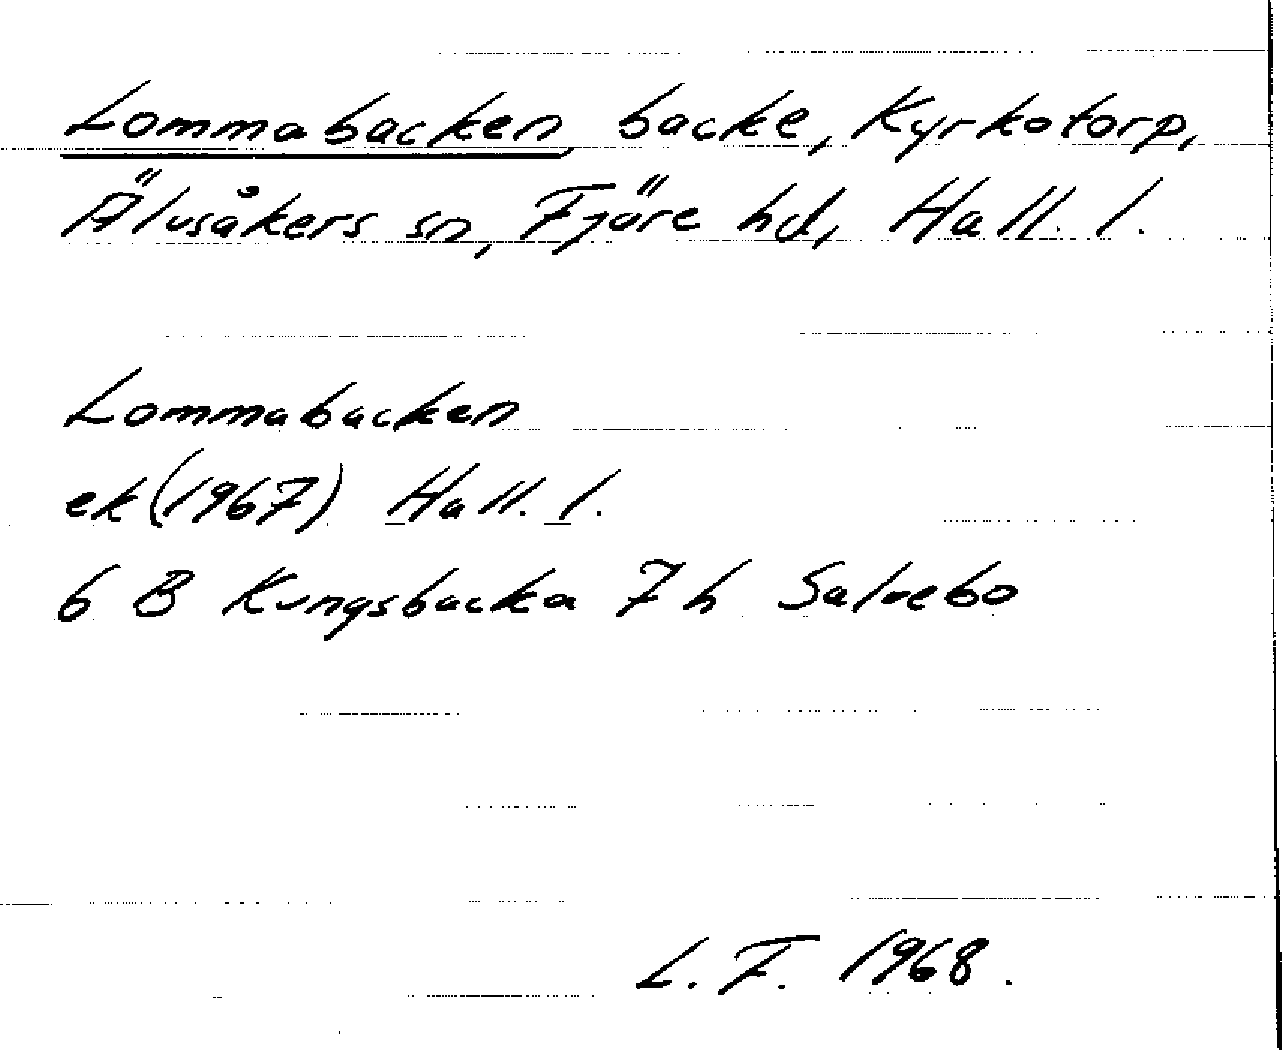 Lommabacken, backe, Kyrkotorp,
Älvsåkers sn, Fjäre hd, Hall. l.
Lommabacken
ek (1967) Hall. l.
6 B Kungsbacka 7 h Salvebo
L. F. 1968.